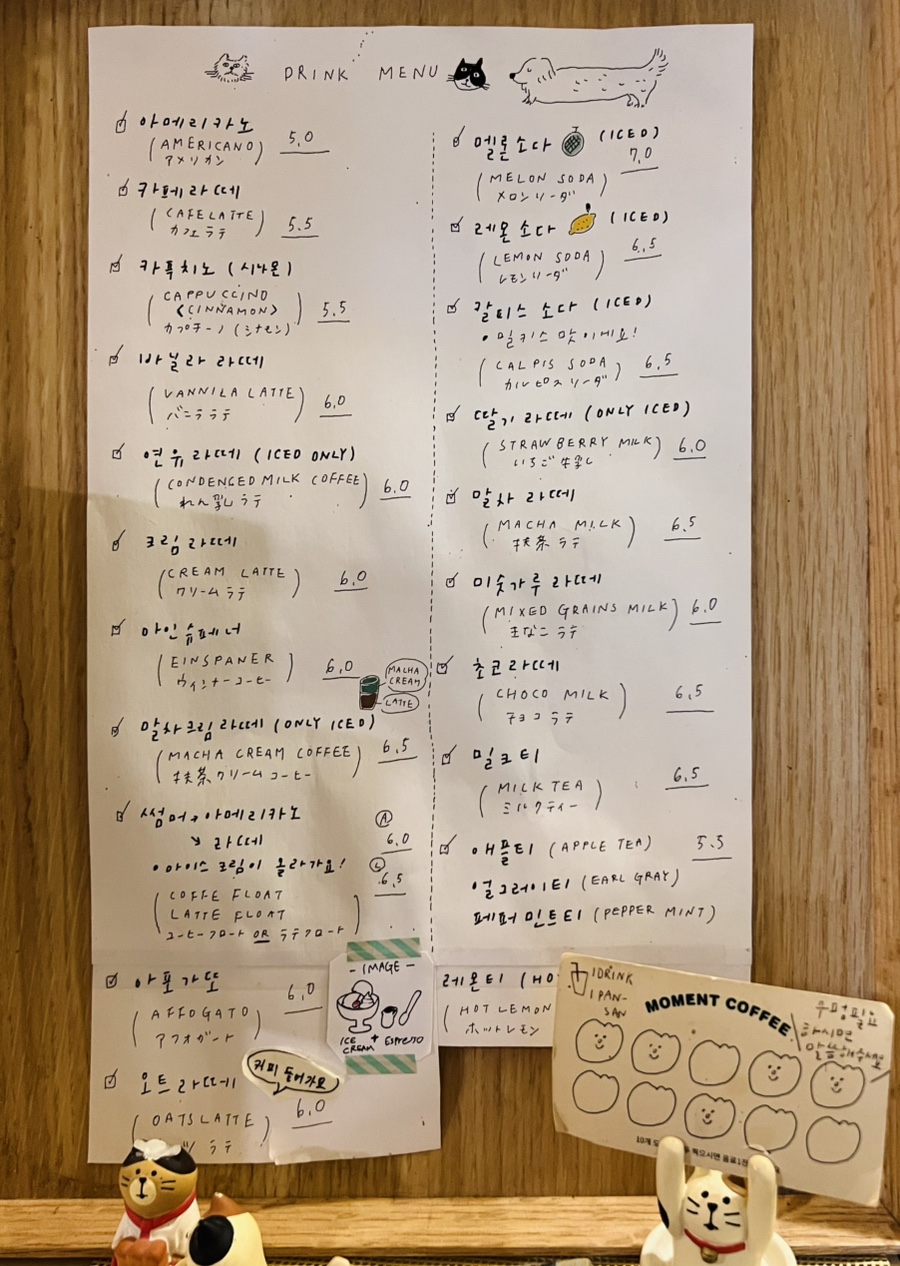 DRINK MENU
아메리카노
(AMERICANO) 5.0
アメリカン
카페라떼
(CAFELATTE) 5.5
カフェラテ
카푸치노 (시나몬)
(CAPPUCCINO
<CINNAMON> 5.5
カプチーノ (シナモン))
바닐라 라떼
(VANNILA LATTE) 6.0
バニララテ
연유라떼 (ICED ONLY)
(CONDENCED MILK COFFEE) 6.0
れん乳しラテ
크림라떼
(CREAM LATTE) 6.0
クリームラテ
아인슈페너
(EINSPANER) 6.0
ウィンナーコーヒー
MACHA
CREAM
LATTE
말차크림라떼 (ONLY ICED)
(MACHA CREAM COFFEE) 6.5
抹茶クリームコーヒー
썸머 아메리카노 Ⓐ
라떼 6.0
•아이스크림이 올라가요! Ⓛ
6.5
(COFFE FLOAT
LATTE FLOAT
コーヒーフロート OR ラテフロート)
아포가또
(AFFOGATO) 6.0
アフォガート
- IMAGE -
ICE
CREAM + ESPRESSO
오트라떼
커피 들어가요
(OATSLATTE) 6.0
ラテ
멜론소다 (ICED)
7.0
(MELON SODA)
メロンソーダ
레몬소다 (ICED)
6.5
(LEMON SODA)
レモンソーダ
칼피스 소다 (ICED)
•밀키스 맛이에요!
(CALPIS SODA) 6.5
カルピスソーダ
딸기라떼 (ONLY ICED)
(STRAWBERRY MILK) 6.0
いちご牛乳し
말차 라떼
(MACHA MILK) 6.5
抹茶ラテ
미숫가루 라떼
(MIXED GRAINS MILK) 6.0
きなこラテ
초코라떼
(CHOCO MILK) 6.5
チョコラテ
밀크티
(MILK TEA) 6.5
ミルクティー
애플티 (APPLE TEA) 5.5
얼그레이티 (EARL GRAY)
페퍼민트티 (PEPPER MINT)
레몬티 (HO
(HOT LEMON
ホットレモン
1DRINK
1PAN-
SAN
MOMENT COFFEE
쿠폰필요
하시면
말씀해주세요
10개 찍으시면 음료1잔